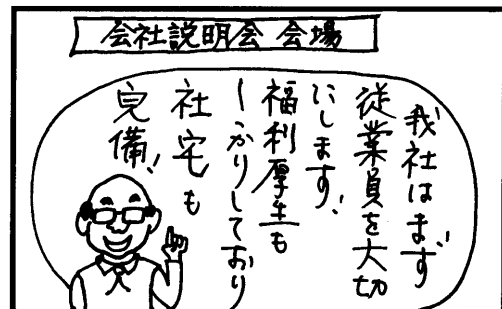 会社説明会 会場
我社はまず
従業員を大切
にします。
福利厚生も
しっかりしており
社宅も
完備!